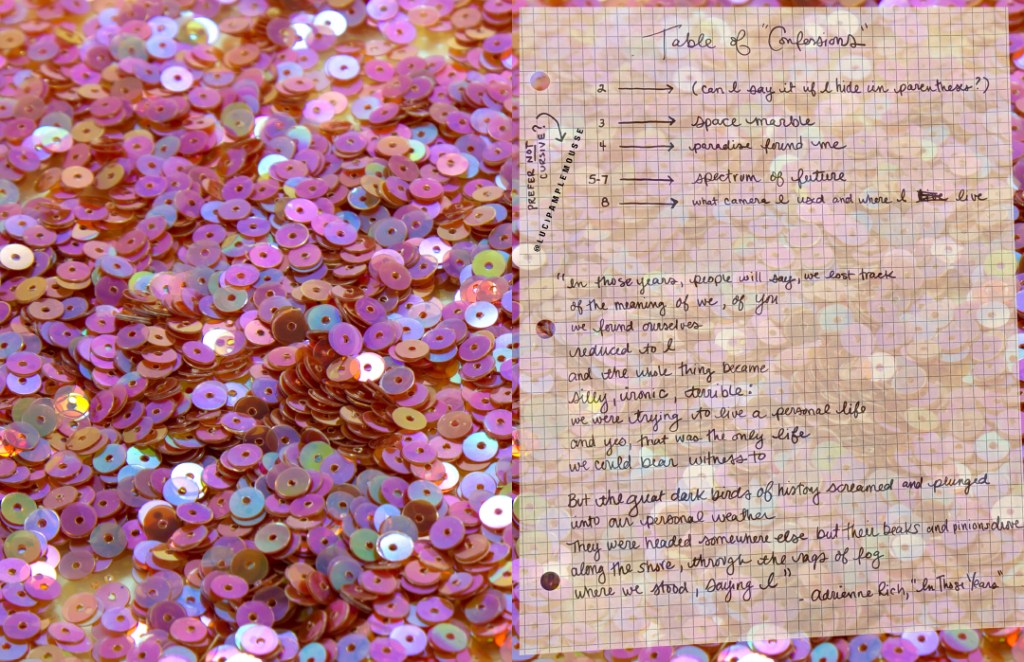 Table of "Confessions"
2 → (can I say it if I hide in parentheses?)
3 → space marble
4 → paradise found me
5-7 → spectrum of future
8 → what camera I used and where I live
PREFER NOT
CURSIVE?
@LUCIPAMPLEMOUSSE
"In those years, people will say, we lost track
of the meaning of we, of you
we found ourselves
reduced to I
and the whole thing became
silly, ironic, terrible:
we were trying to live a personal life
and yes, that was the only life
we could bear witness to
But the great dark birds of history screamed and plunged
into our personal weather
They were headed somewhere else but their beaks and pinions drove
along the shore, through the rags of fog
where we stood, saying I"
- Adrienne Rich, "In Those Years"